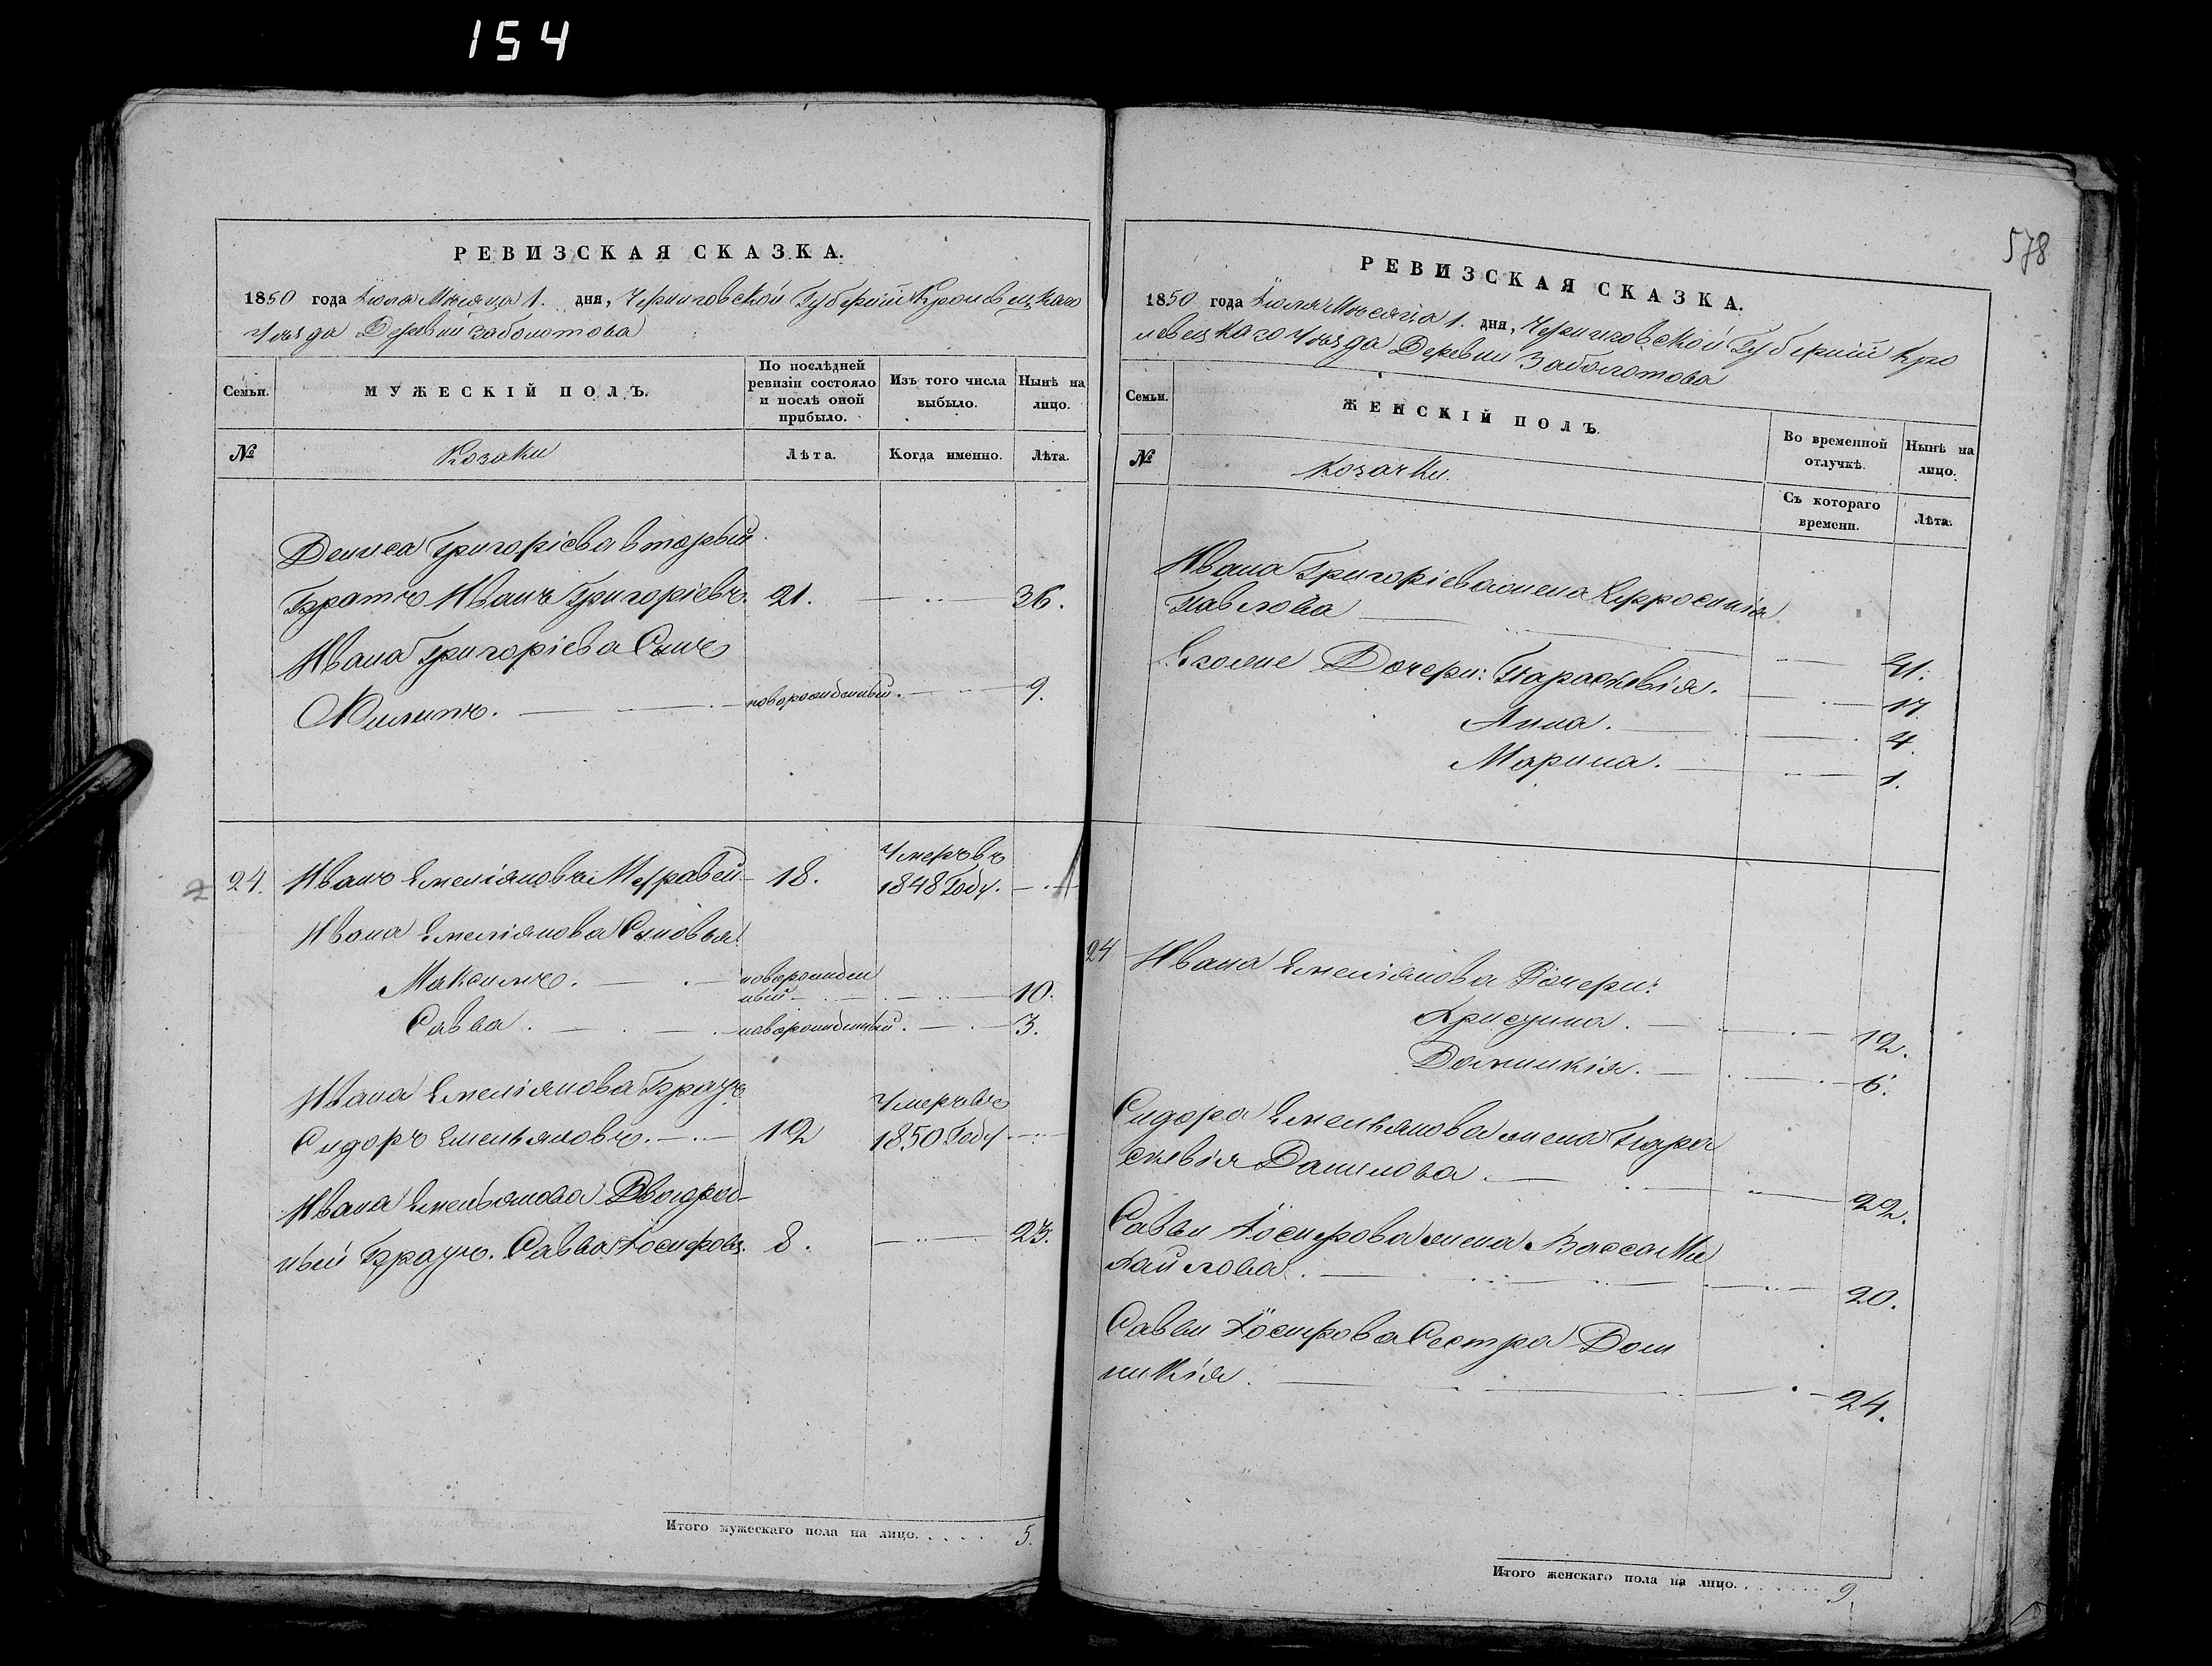 154
РЕВИЗСКАЯ СКАЗКА.
1850 года Іюля Мѣсяца 1. дня, Черниговской Губерніи Кролевецкаго
Уѣзда Деревни Заболотова
Семьи.
МУЖЕСКІЙ ПОЛЪ.
По послѣдней
ревизіи состояло
и послѣ оной
прибыло.
Изъ того числа
выбыло.
Нынѣ на
лицо.
№
Козаки
Лѣта.
Когда именно.
Лѣта.
Дениса Григоріева вторый
Братъ Иванъ Григоріевъ. 21. 36.
Ивана Григоріева Сынъ
Филипъ. новорожденный. 9.
24. Иванъ Емеліяновъ 18. Умеръ въ
1848 Году.
Ивана Емеліянова Сыновья:
Максимъ. новорожден
ный 10.
Савва. новорожденный. 3.
Ивана Емеліянова Братъ
Сидоръ Емельяновъ. 12 Умеръ въ
1850 Году
Ивана Емельянова Двоюрод-
ный Братъ. Савва Іосифовъ. 8. 23.
Итого мужескаго пола на лицо. . . . . 5.
578
РЕВИЗСКАЯ СКАЗКА.
1850 года Іюля Мѣсяца 1. дня, Черниговской Губерніи Кро
левецкаго Уѣзда Деревни Заболотова
Семьи.
ЖЕНСКІЙ ПОЛЪ.
Во временной
отлучкѣ.
Нынѣ на
лицо.
№
Козачки.
Съ котораго
времени.
Лѣта.
Ивана Григоріева жена Ефросинія
Павлова 41.
Егоже Дочери: Параскевія. 17.
Анна. 4.
Марина. 1.
24 Ивана Емеліянова Дочери:
Христина. 12.
Домникія. 6.
Сидора Емельянова жена Пара
скевія Данилова 22.
Саввы Іосифова жена Васса Ми
хайлова. 20.
Саввы Іосифова Сестра Дом
никія. 24.
Итого женскаго пола на лицо. . . . . . . 9.